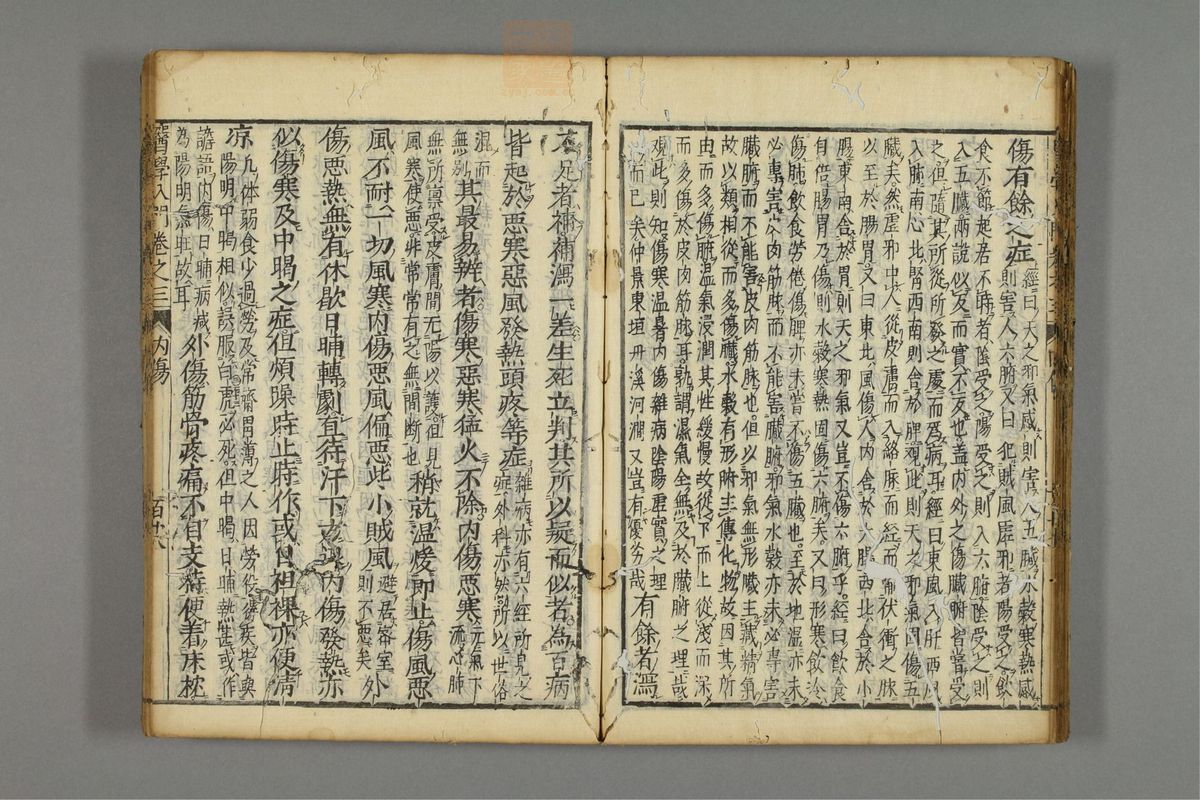 傷有餘之症經曰天之邪氣感則害人五臟水穀寒熱感
則害人六腑又曰犯賊風虛邪者陽受之飲
食不節起居不時者陰受之陽受之則入六腑陰受之則
入五臟兩說似反而實不反也蓋內外之傷臟腑皆當受
之但隨其所從所發之處而爲病耳經曰東風入肝西風
入肺南心北腎西南則舍於脾觀此則天之邪氣固傷五
臟矣然虛邪中人從皮膚而入絡脈而經而輸伏衝之脉
以至於腸胃又曰東北風傷人內舍於大腸西北舍於小
腸東南舍於胃則天之邪氣又豈不傷六腑乎經曰飲食
自倍腸胃乃傷則水穀寒熱固傷六腑矣又曰形寒飲冷
傷肺飲食勞倦傷脾亦未嘗不傷五臟也至於地溫亦未
必專害分肉筋脉而不能害臟腑邪氣水穀亦未必專害
臟腑而不能害皮肉筋脉也但以邪氣無形臟主藏精氣
故以類相從而多傷臟水穀有形腑主傳化物故因其所
由而多傷腑溫氣浸潤其性緩慢故從下而上從淺而深
而多傷於皮肉筋脉耳孰謂濕氣全無及於臟腑之理哉
觀此則知傷寒溫暑內傷雜病陰陽虛實之理
而已矣仲景東垣丹溪河澗又豈有優劣哉有餘者瀉
不足者補補瀉一差生死立判其所以疑而似者為百病
皆起於惡寒惡風發熱頭疼等症雜病亦有六經所見之
症外科亦然所以世俗
混而
無別其最易辨者傷寒惡寒猛火不除內傷惡寒元氣下
流心肺
無所禀受皮膚間无陽以護但見
風寒便惡非常常有之無間斷也稍就溫煖即止傷風惡
風不耐一切風寒內傷惡風偏惡些小賊風避居密室
則不惡矣外
傷惡熱無有休歇日晡轉劇直待汗下方退內傷發熱亦
似傷寒及中暍之症但煩躁時止時作或日袒裸亦便清
凉凡体弱食少過勞及常齋胃薄之人因勞役得疾皆與
陽明中暍相似誤服白虎必死但中暍日晡熱甚或作
譫語內傷日晡病減
為陽明氣旺故耳外傷筋骨疼痛不自支持便着床枕
醫學入門 卷之三 內傷